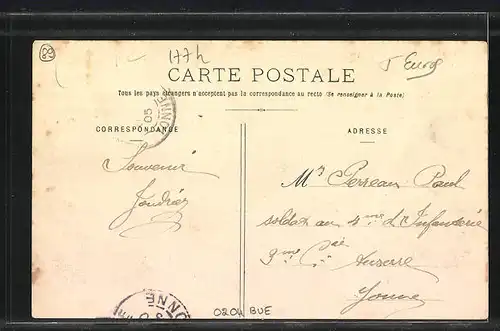 89
1774
5 Euros
CARTE POSTALE
Tous les pays étrangers n'acceptent pas la correspondance au recto (Se renseigner à la Poste)
CORRESPONDANCE
ADRESSE
05
Souvenir
Mr Perreau Paul
soldat au 4me d'Infanterie
9me Cie
Auxerre
Yonne
ONNE
0204 BUE